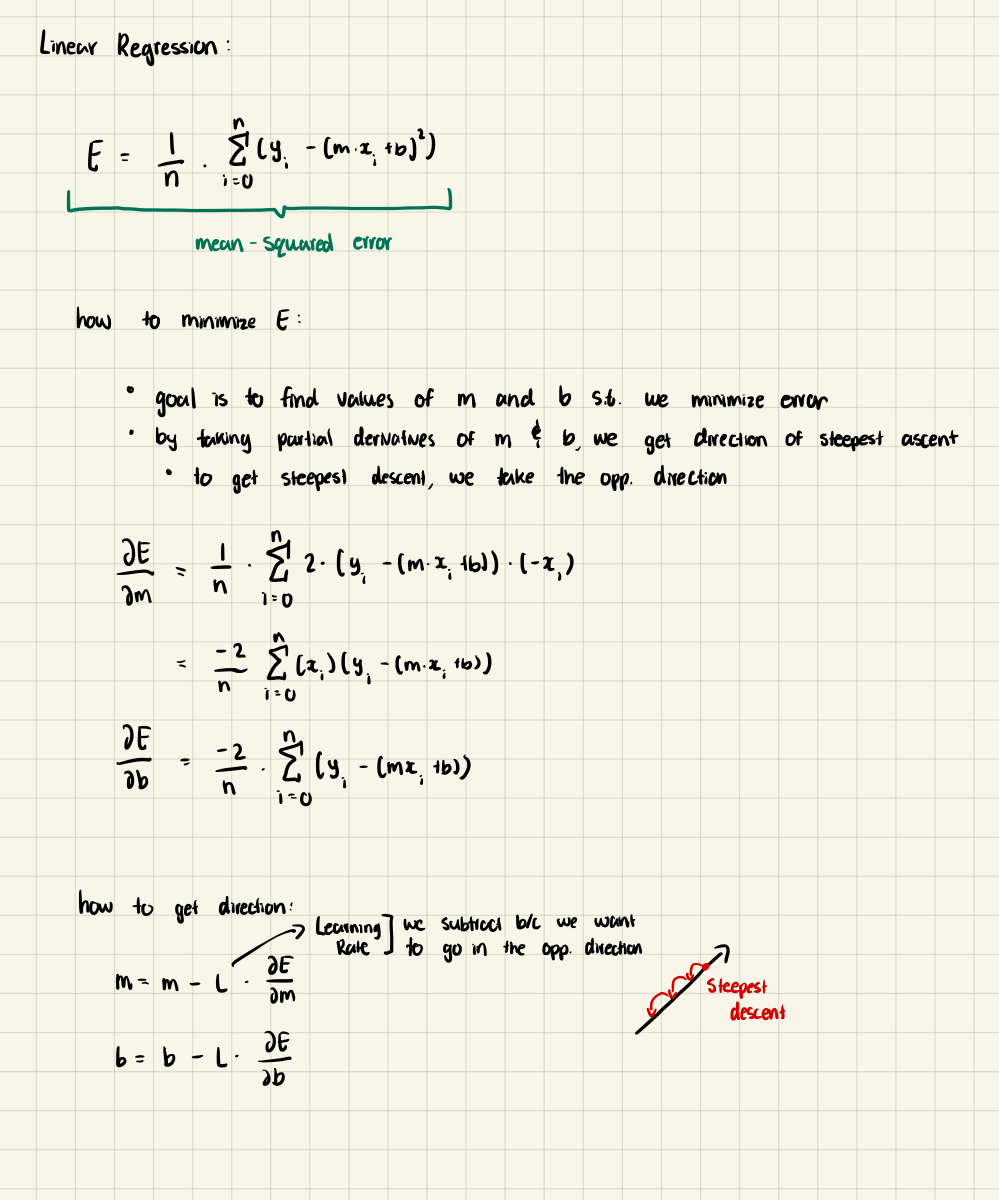 Linear Regression:
E = 1/n · Σ_{i=0}^{n} (y_i - (m·x_i + b)^2)
mean-squared error
how to minimize E:
• goal is to find values of m and b s.t. we minimize error
• by taking partial derivatives of m & b, we get direction of steepest ascent
• to get steepest descent, we take the opp. direction
∂E/∂m = 1/n · Σ_{i=0}^{n} 2·(y_i - (m·x_i + b))·(-x_i)
= -2/n Σ_{i=0}^{n} (x_i)(y_i - (m·x_i + b))
∂E/∂b = -2/n · Σ_{i=0}^{n} (y_i - (mx_i + b))
how to get direction:
Learning Rate ] we subtract b/c we want
to go in the opp. direction
m = m - L · ∂E/∂m
b = b - L · ∂E/∂b
steepest
descent